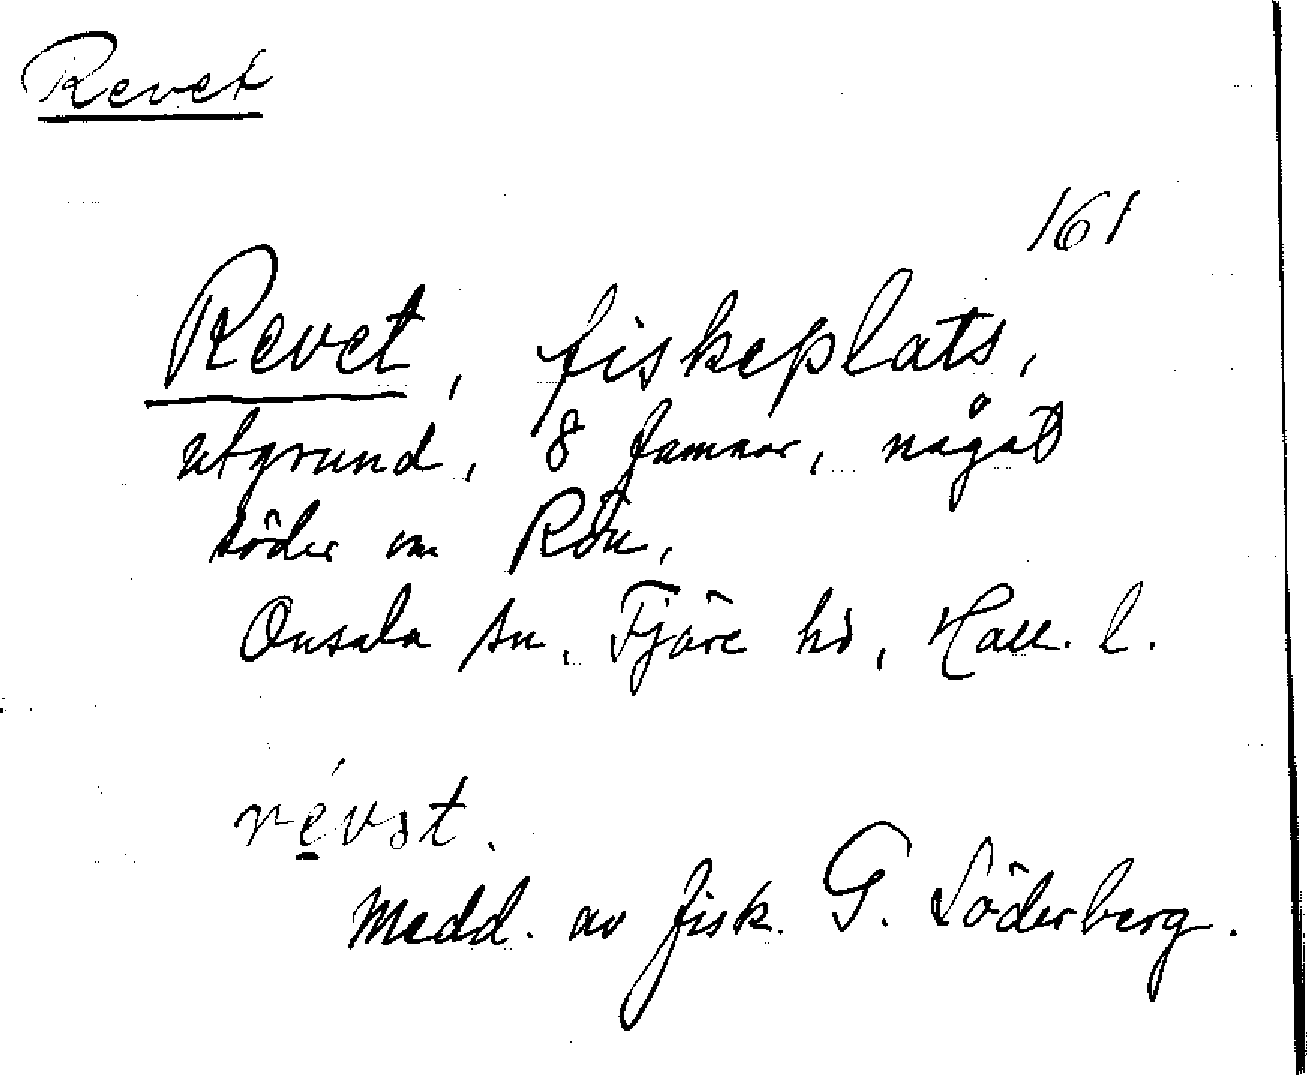 Revet
161
Revet, fiskeplats,
utgrund, 8 famnar, något
söder om Rön,
Onsala sn, Fjäre hd, Hall. l.
révət.
Medd. av fisk. G. Söderberg.